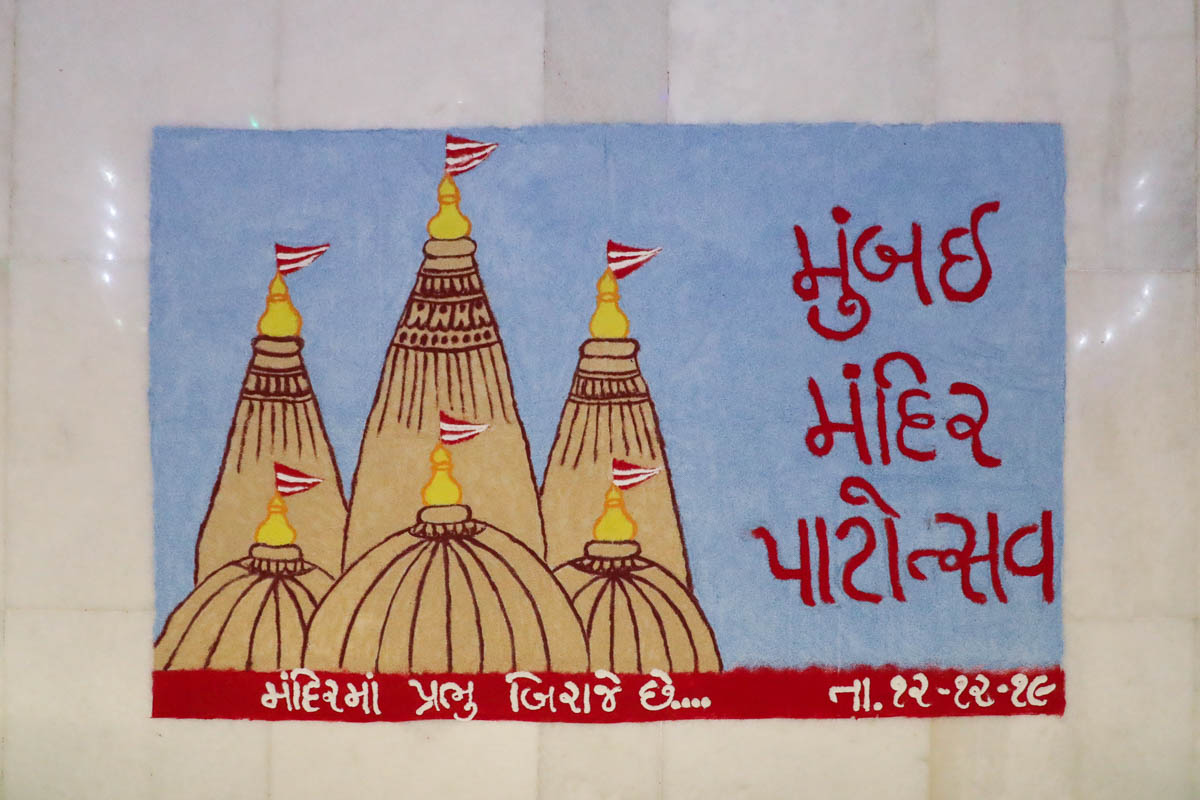 મુંબઈ
મંદિર
પાટોત્સવ
મંદિરમાં પ્રભુ બિરાજે છે.... તા.૧૨-૧૨-૧૯